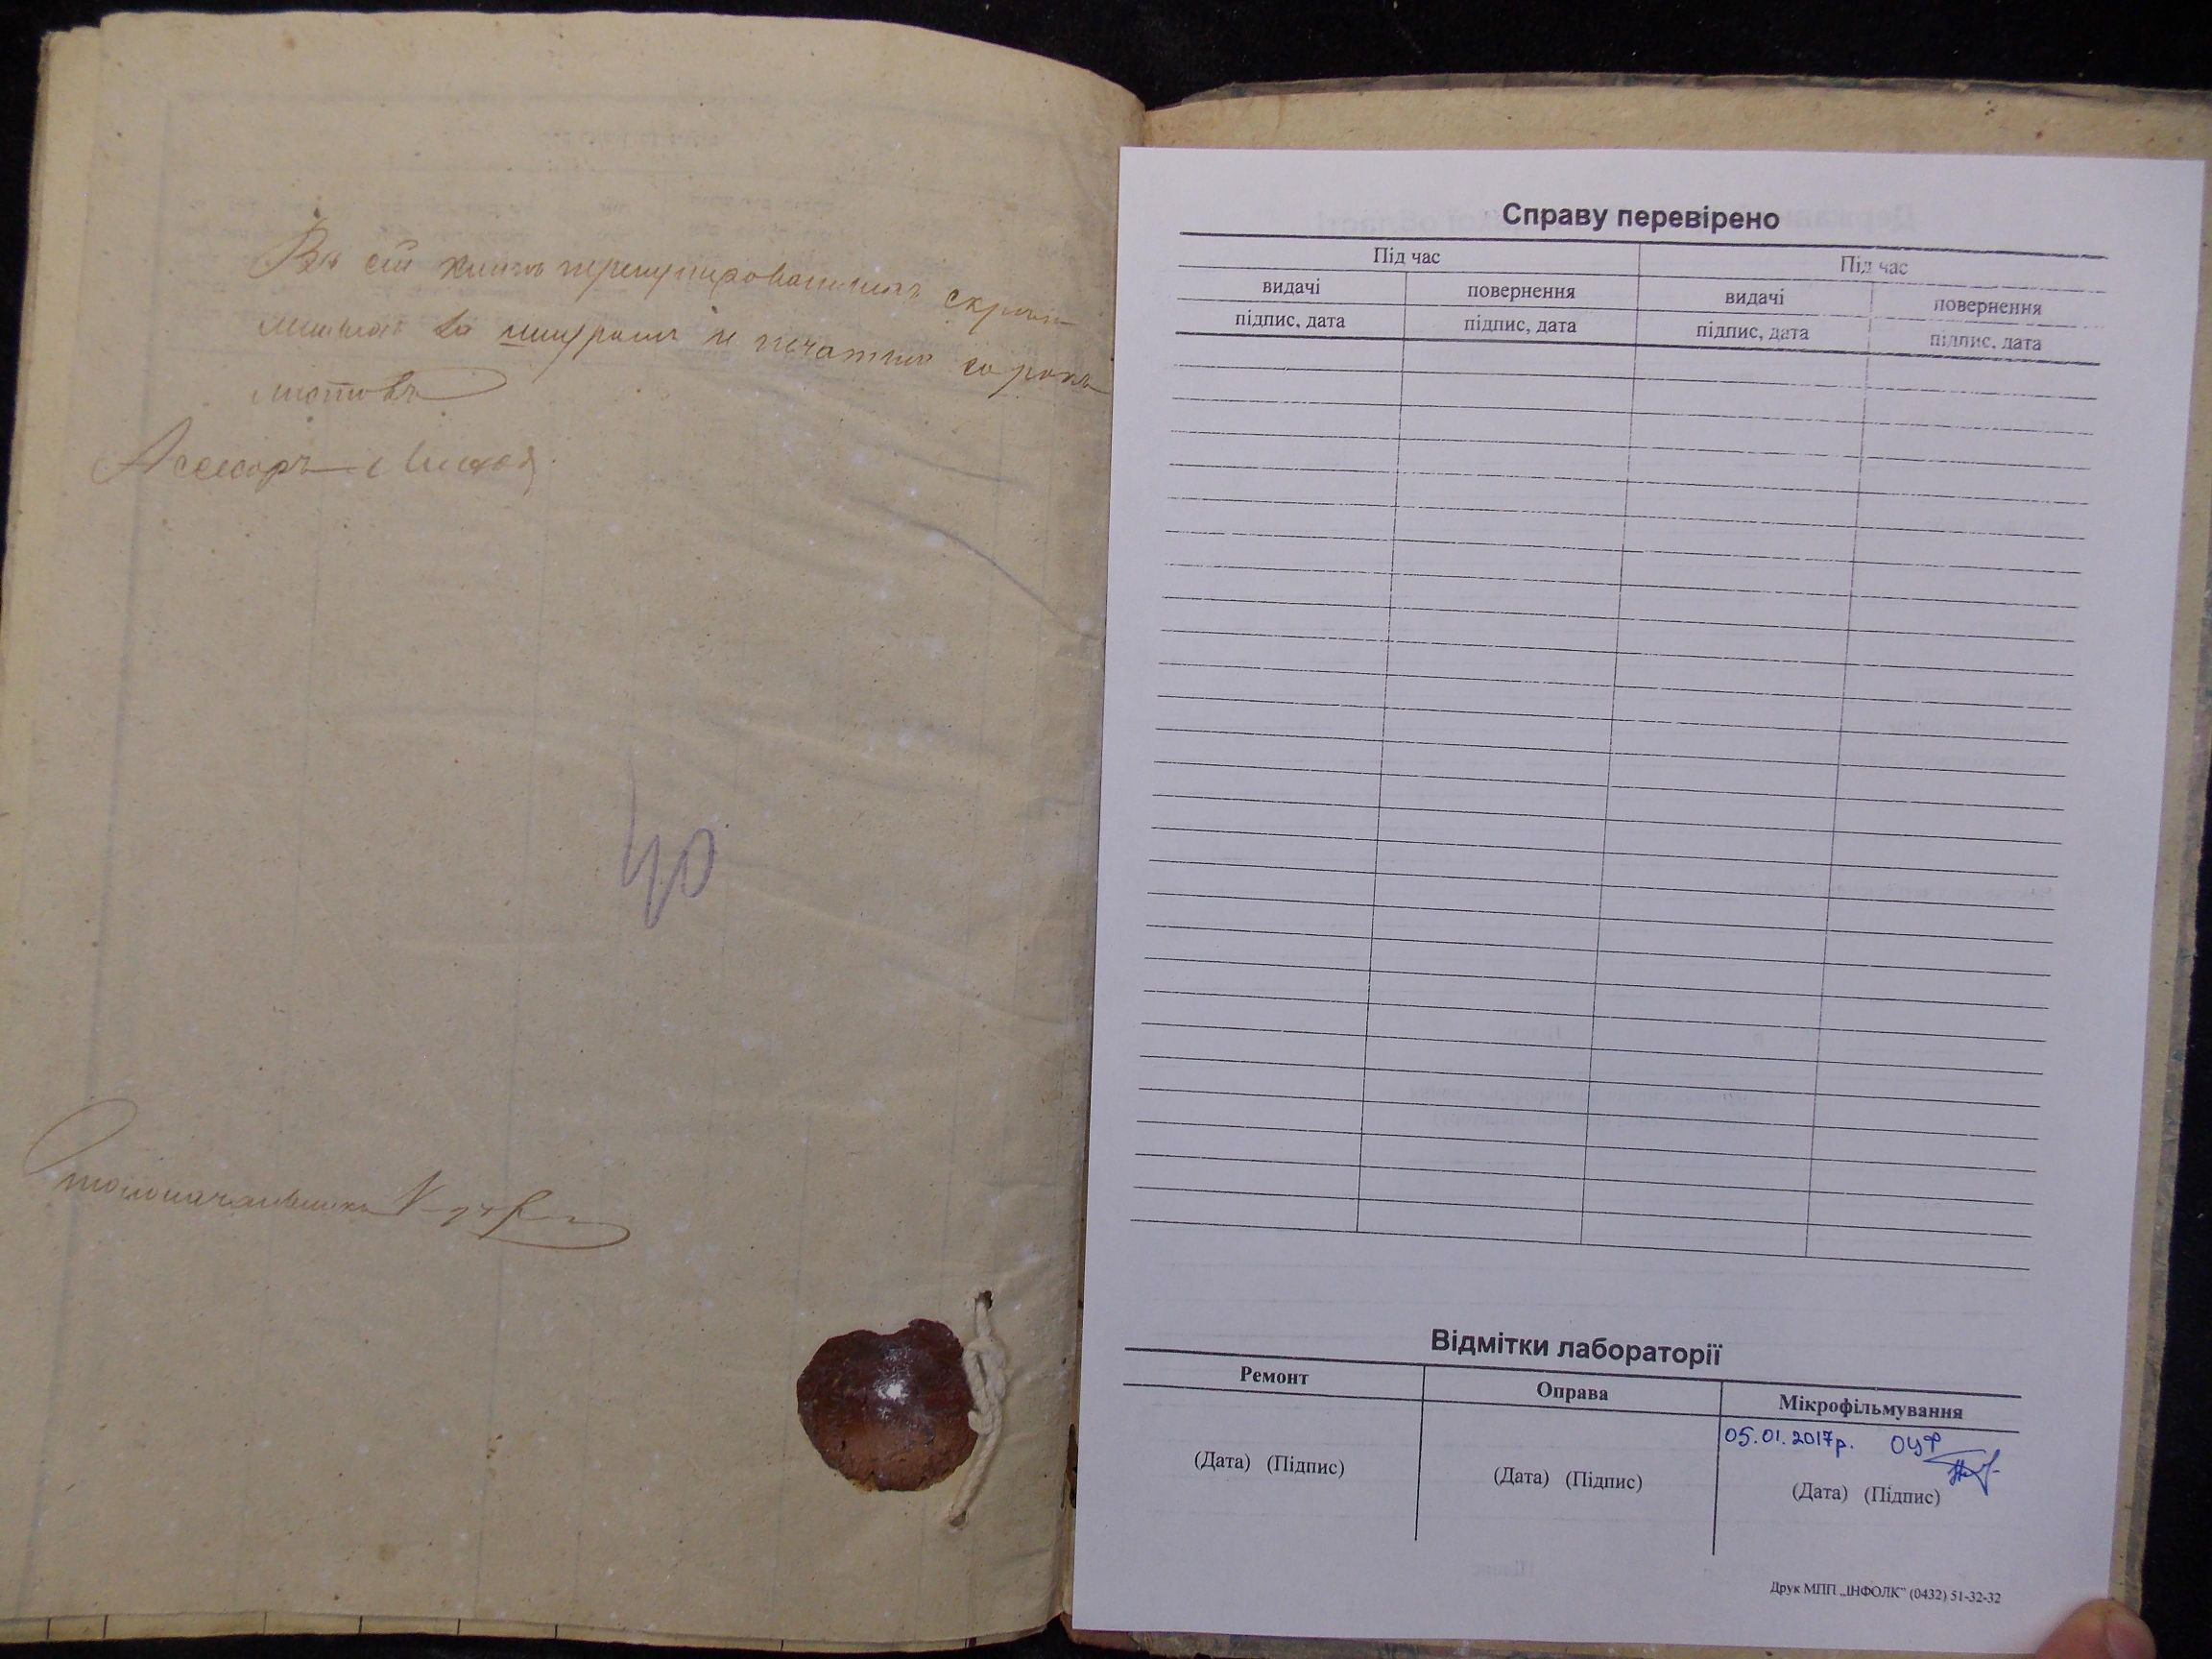 Въ сей книгѣ перенумерованныхъ скрѣп
ленныхъ за шнуромъ и печатью сорокъ
листовъ
Асесоръ
40
Столоначальникъ
Справу перевірено
Під час Під час
видачі повернення видачі повернення
підпис, дата підпис, дата підпис, дата підпис, дата
Відмітки лабораторії
Ремонт Оправа Мікрофільмування
05.01.2017р. ОУФ
(Дата) (Підпис) (Дата) (Підпис) (Дата) (Підпис)
Друк МПП „ІНФОЛК” (0432) 51-32-32